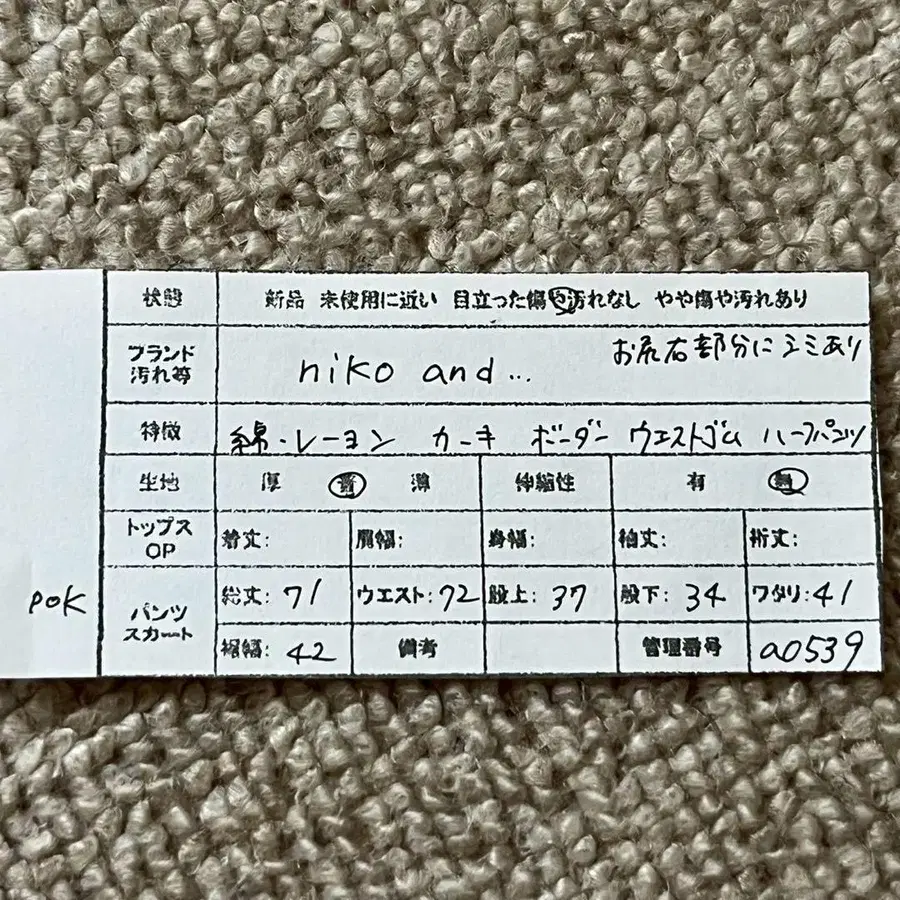 状態 新品 未使用に近い 目立った傷や汚れなし やや傷や汚れあり
ブランド
汚れ等
niko and...
お尻右部分にシミあり
特徴 綿・レーヨン カーキ ボーダー ウエストゴム ハーフパンツ
生地 厚 普 薄 伸縮性 有 無
トップス
OP
着丈: 肩幅: 身幅: 袖丈: 裄丈:
POK
パンツ
スカート
総丈: 71 ウエスト: 72 股上: 37 股下: 34 ワタリ: 41
裾幅: 42 備考 管理番号 a0539